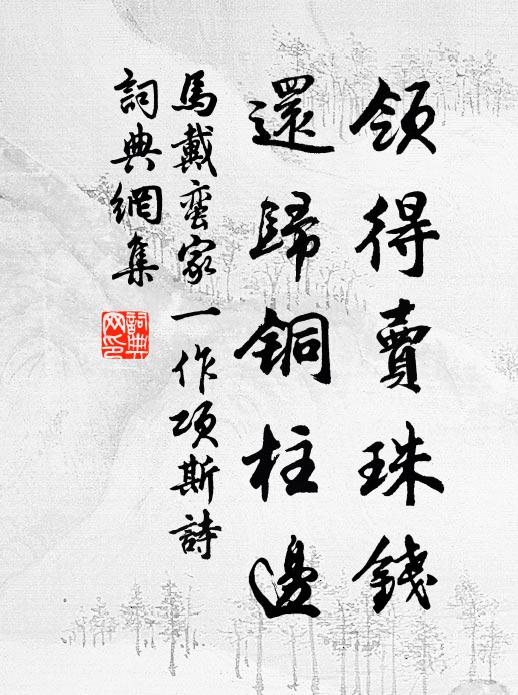 領得賣珠錢
還歸銅柱邊
馬戴蛮家一作項斯詩
詞典網集
詞典网印